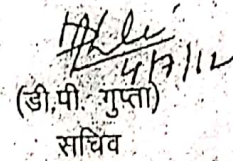 4/7/12
(डी.पी. गुप्ता)
सचिव